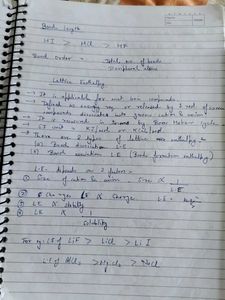 Bond length
HI > HCl > HF
Bond order = Total no. of bonds
Peripheral atoms
Lattice Enthalpy
→ It is applicable for ionic compounds
→ Defined as energy req. or released by 1 mol of
compounds dissociates into gaseous cation & anion
→ It is measured in terms by Born Haber cycle
SI unit = KJ/mol or Kcal/mol
→ There are 2 types of lattice enthalpy
(a) Bond dissociation L.E
(b) Bond association L.E (Bond formation enthalpy)
L.E. depends on 2 factors =
① Size of cation & anion Size ∝ 1
L.E
② Charges LE ∝ Charge LE =
③ LE ∝ stability
④ LE ∝ 1
Solubility
For eg: LE of LiF > LiCl > LiI
LE of AlCl3 > MgCl2 > NaCl